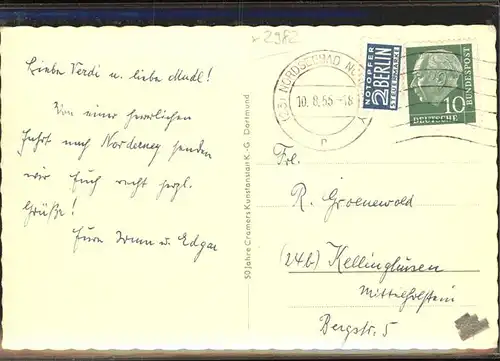 2982
Liebe Verdi u. liebe Mudl!
Von einer herrlichen
Fahrt nach Norderney senden
wir Euch recht herzl.
Grüße!
Eure u. Edgar
50 Jahre Cramers Kunstanstalt K.-G. Dortmund
(23) NORDSEEBAD
10.8.55
NOTOPFER
2 BERLIN
STEUERMARKE
10
DEUTSCHE
BUNDESPOST
Frl.
R. Groenewold
(24b) Kellinghusen
Mittelholstein
Bergstr. 5